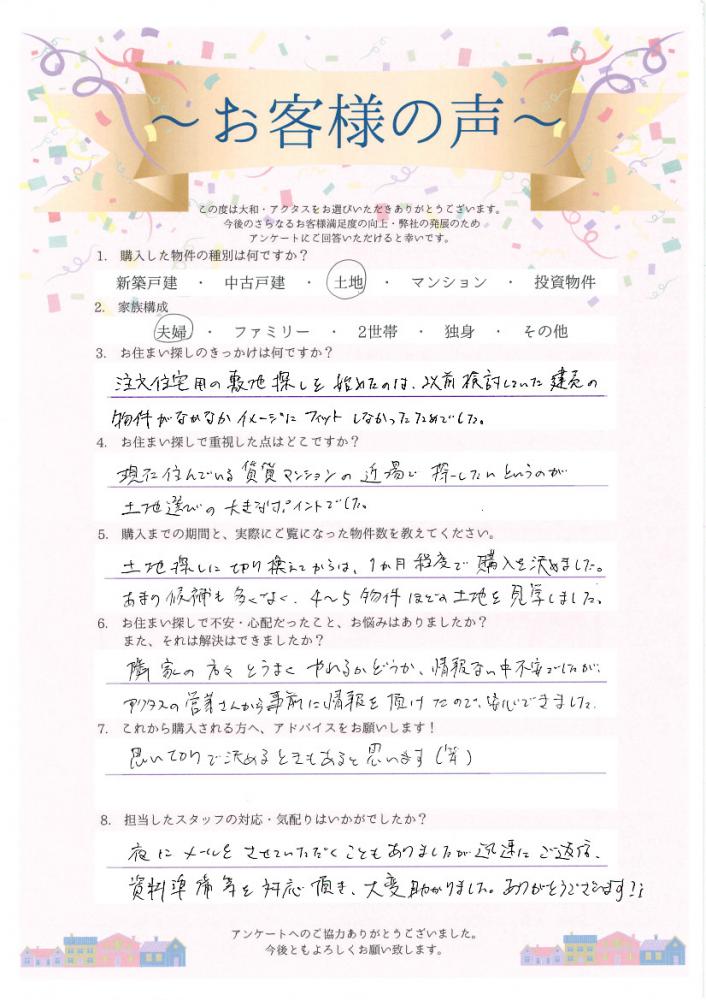 ～お客様の声～
この度は大和・アクタスをお選びいただきありがとうございます。
今後のさらなるお客様満足度の向上・弊社の発展のため
アンケートにご回答いただけると幸いです。
1. 購入した物件の種別は何ですか？
新築戸建 ・ 中古戸建 ・ 土地 ・ マンション ・ 投資物件
2. 家族構成
夫婦 ・ ファミリー ・ 2世帯 ・ 独身 ・ その他
3. お住まい探しのきっかけは何ですか？
注文住宅用の敷地探しを始めたのは、以前検討していた建売の
物件がなかなかイメージにフィットしなかったためでした。
4. お住まい探しで重視した点はどこですか？
現在住んでいる賃貸マンションの近場で探したいというのが
土地選びの大きなポイントでした。
5. 購入までの期間と、実際にご覧になった物件数を教えてください。
土地探しに切り換えてからは、1か月程度で購入を決めました。
あまり候補も多くなく、4～5物件ほどの土地を見学しました。
6. お住まい探しで不安・心配だったこと、お悩みはありましたか？
また、それは解決はできましたか？
隣家の方々とうまくやれるかどうか、情報ない中不安でしたが、
アクタスの営業さんから事前に情報を頂けたので、安心できました。
7. これから購入される方へ、アドバイスをお願いします！
思い切りで決めるときもあると思います（笑）
8. 担当したスタッフの対応・気配りはいかがでしたか？
夜にメールをさせていただくこともありましたが迅速にご返信、
資料準備等を対応頂き、大変助かりました。ありがとうございます!!
アンケートへのご協力ありがとうございました。
今後ともよろしくお願い致します。